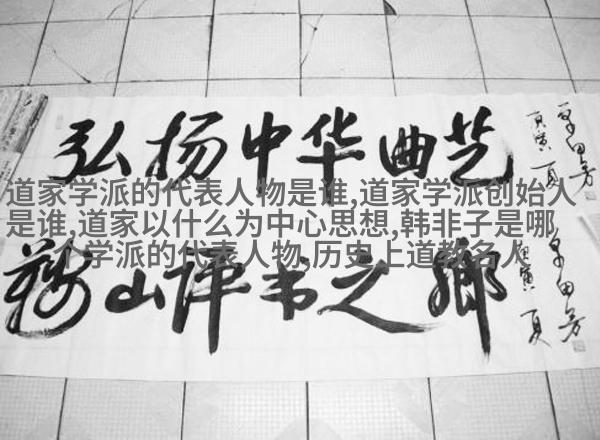 弘扬中华曲艺
单田芳
庚寅 夏
道家学派的代表人物是谁,道家学派创始人
是谁,道家以什么为中心思想,韩非子是哪
个学派的代表人物,历史上道教名人
鞍山评书之鄉
单田芳
庚寅 夏